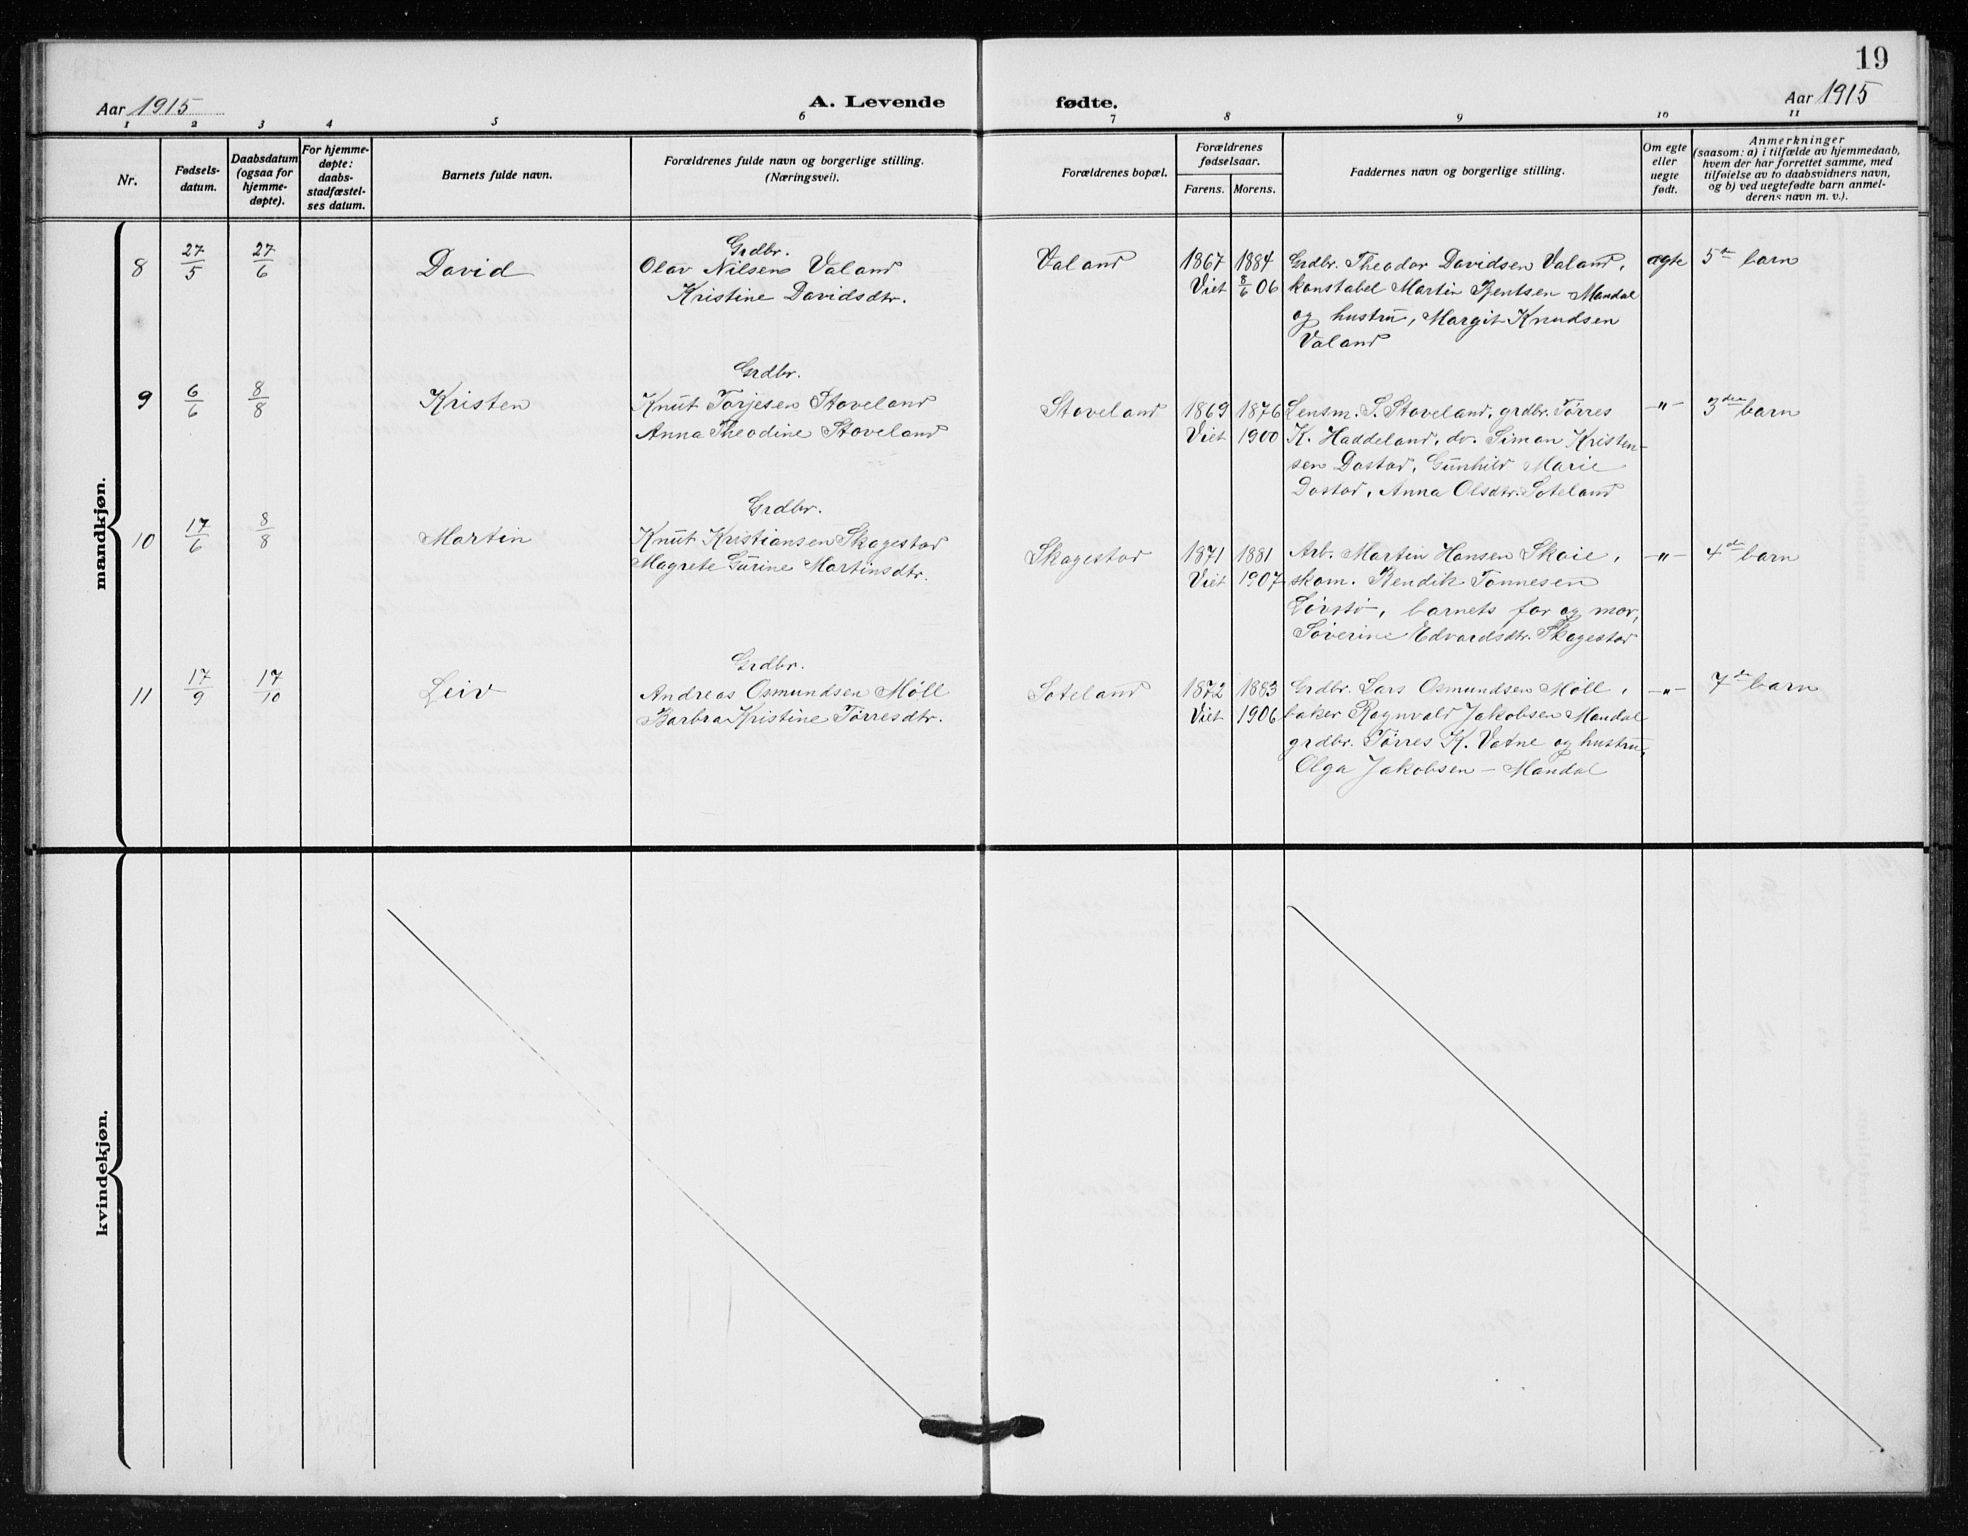 19
Aar 1915
A. Levende
fødte.
Aar 1915
1 2 3 4 5 6 7 8 9 10 11
Nr.
Fødsels-
datum.
Daabsdatum
(ogsaa for
hjemme-
døpte).
For hjemme-
døpte:
daabs-
stadfæstel-
ses datum.
Barnets fulde navn.
Forældrenes fulde navn og borgerlige stilling.
(Næringsvei).
Forældrenes bopæl.
Forældrenes
fødselsaar.
Farens. Morens.
Faddernes navn og borgerlige stilling.
Om egte
eller
uegte
født.
Anmerkninger
(saasom: a) i tilfælde av hjemmedaab,
hvem der har forrettet samme, med
tilføielse av to daabsvidners navn,
og b) ved uegtefødte barn anmel-
derens navn m. v.).
mandkjøn.
8 27/5 27/6 David
Grdbr.
Olav Nilsen Valand
Kristine Davidsdtr.
Valand
1867 1884
Viet 8/6 06
Grdbr. Theodor Davidsen Valand,
konstabel Martin Bentsen Mandal
og hustru, Margit Knudsen
Valand
ægte
5te barn
9 6/6 8/8 Kristen
Grdbr.
Knut Torjesen Stoveland
Anna Theodine Stoveland
Stoveland
1869 1876
Viet 1900
Lensm. S. Stoveland, grdbr. Tørres
K. Haddeland, do. Simon Kristen-
sen Dastad, Gunhild Marie
Dastad, Anna Olsdtr. Soteland
-"-
3die barn
10 17/6 8/8 Martin
Grdbr.
Knut Kristiansen Skagestad
Magrete Gurine Martinsdtr.
Skagestad
1871 1881
Viet 1907
Arb. Martin Hansen Skaie,
skom. Bendik Tønnesen
Løvstø, barnets far og mor,
Severine Edvardsdtr. Skagestad
-"-
4de barn
11 17/9 17/10 Leiv
Grdbr.
Andreas Osmundsen Møll
Barbra Kristine Tørresdtr.
Soteland
1872 1883
Viet 1906
Grdbr. Lars Osmundsen Møll,
baker Ragnvald Jakobsen Mandal
grdbr. Tørres K. Vatne og hustru,
Olga Jakobsen - Mandal
-"-
7de barn
kvindekjøn.